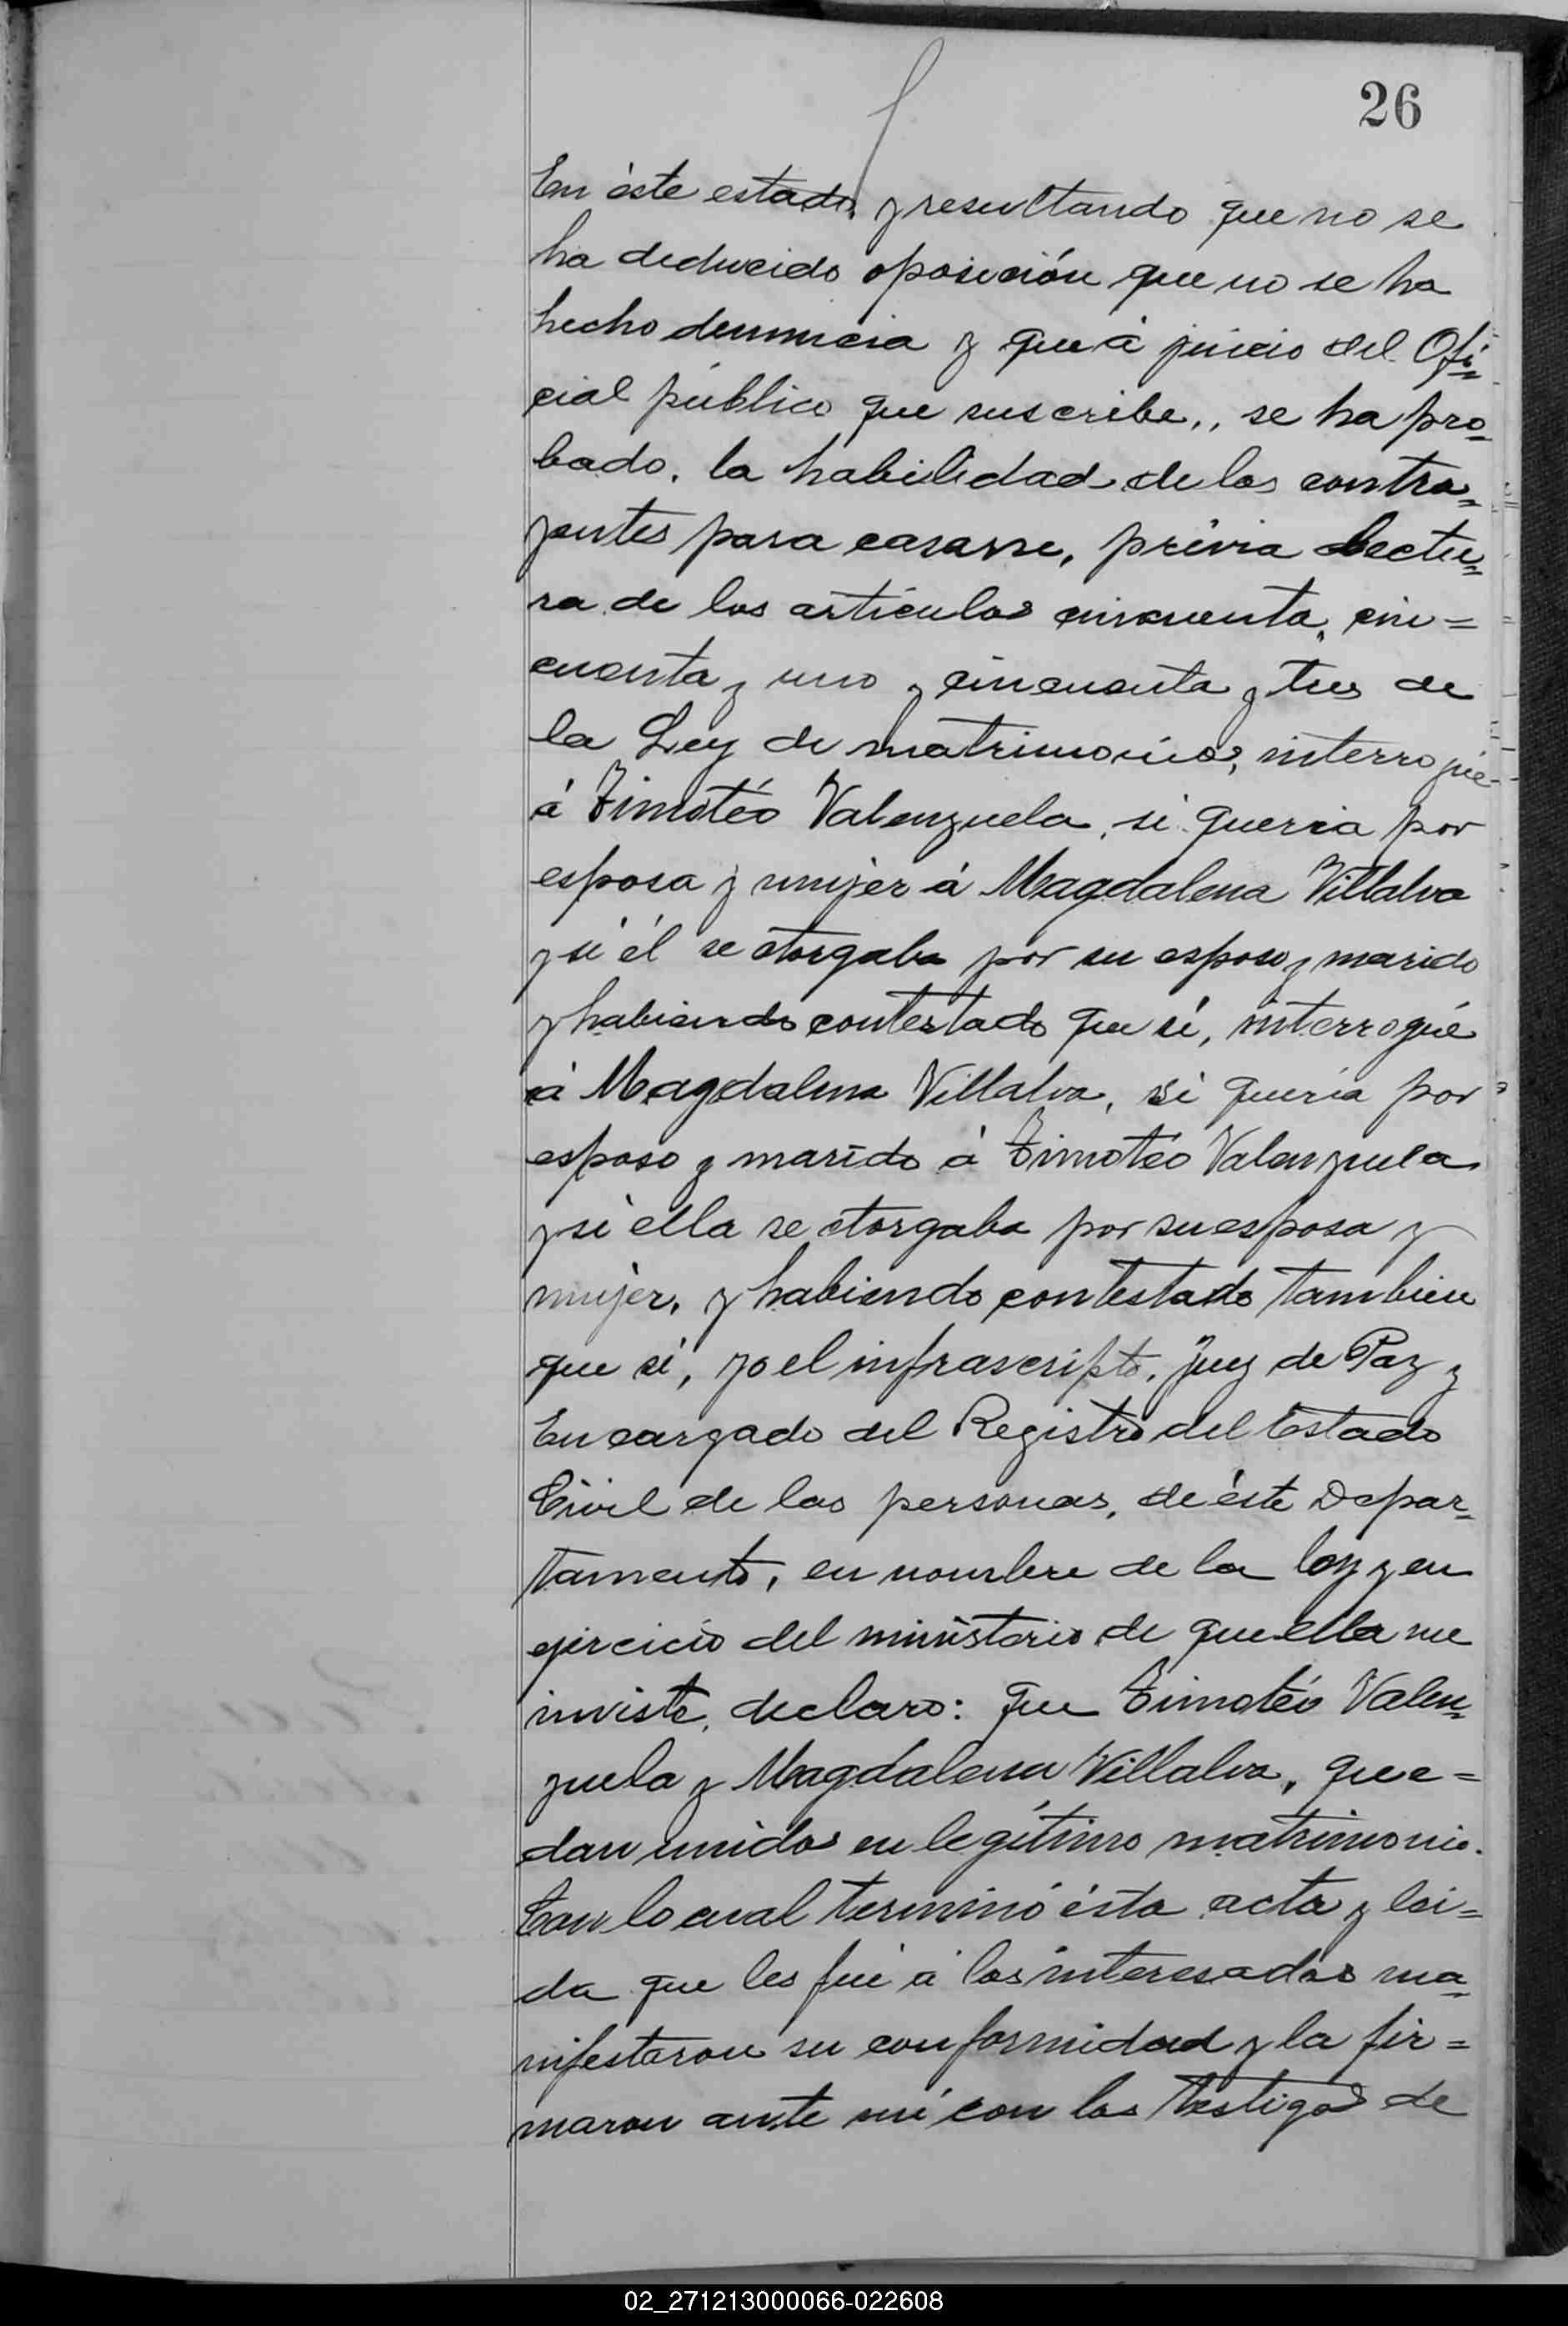 26
En éste estado, y resultando que no se
ha deducido oposición que no se ha
hecho denuncia y que á juicio del Ofi=
cial público que suscribe,, se ha pro=
bado, la habilidad de los contra=
yentes para casarse, prévia lectu=
ra de los artículos cincuenta, cin=
cuenta y uno y cincuenta y tres de
la Ley de matrimonios, interrogué
á Timotéo Valenzuela, si queria por
esposa y mujer á Magdalena Villalva
y si él se otorgaba por su esposo y marido
y habiendo contestado que si, interrogué
á Magdalena Villalva, si quería por
esposo y marido á Timotéo Valenzuela
y si ella se otorgaba por su esposa y
mujer, y habiendo contestado tambien
que si, yo el infrascripto, Juez de Paz y
Encargado del Registro del Estado
Civil de las personas, de éste Depar=
tamento, en nombre de la ley y en
ejercicio del ministerio de que ella me
inviste, declaro: que Timotéo Valen=
zuela y Magdalena Villalva, que=
dan unidos en legítimo matrimonio.
Con lo cual terminó ésta acta y lei=
da que les fué á los interesados ma=
nifestaron su conformidad y la fir=
maron ante mí con los testigos de
02_271213000066-022608